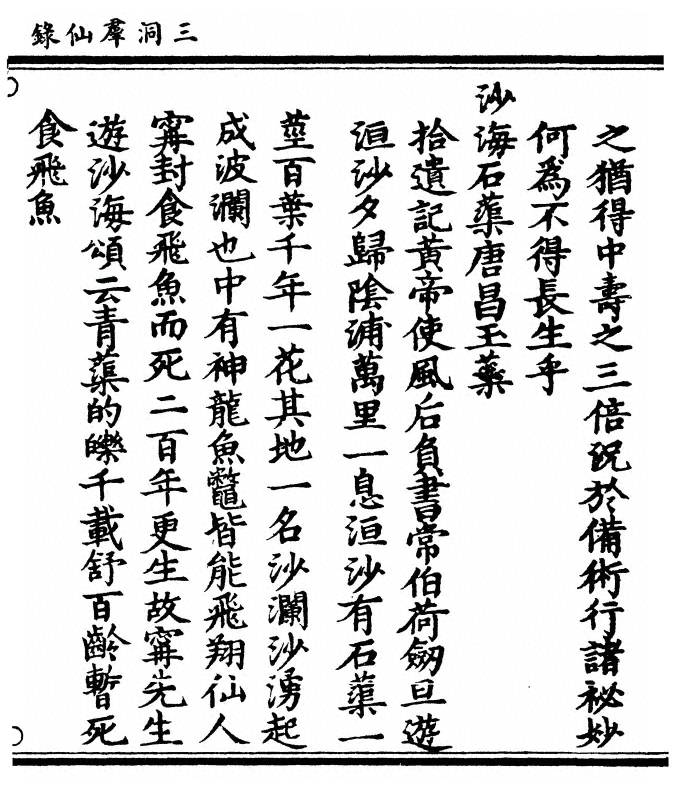 三洞羣仙錄
之猶得中壽之三倍況於備術行諸祕妙
何為不得長生乎
沙海石蕖唐昌玉蘂
拾遺記黃帝使風后負書常伯荷劒旦遊
洹沙夕歸陰浦萬里一息洹沙有石蕖一
莖百葉千年一花其地一名沙瀾沙湧起
成波瀾也中有神龍魚鼈皆能飛翔仙人
甯封食飛魚而死二百年更生故甯先生
遊沙海頌云青蕖的皪千載舒百齡暫死
食飛魚